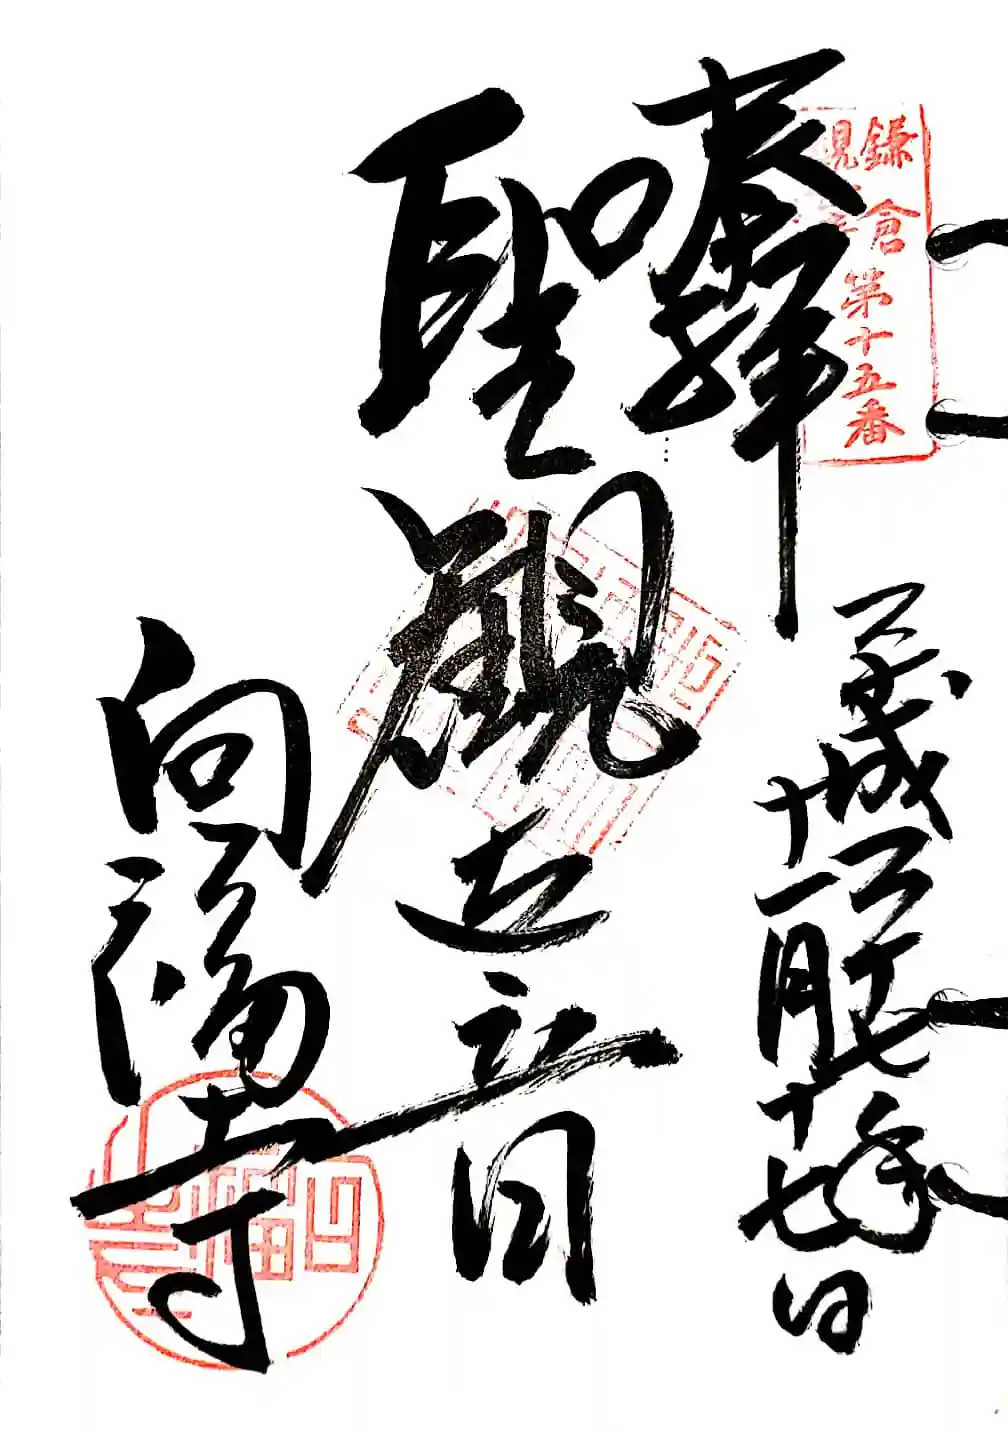 鎌倉第十五番
奉拝
平成二十七年
十一月十七日
聖観世音
向福寺